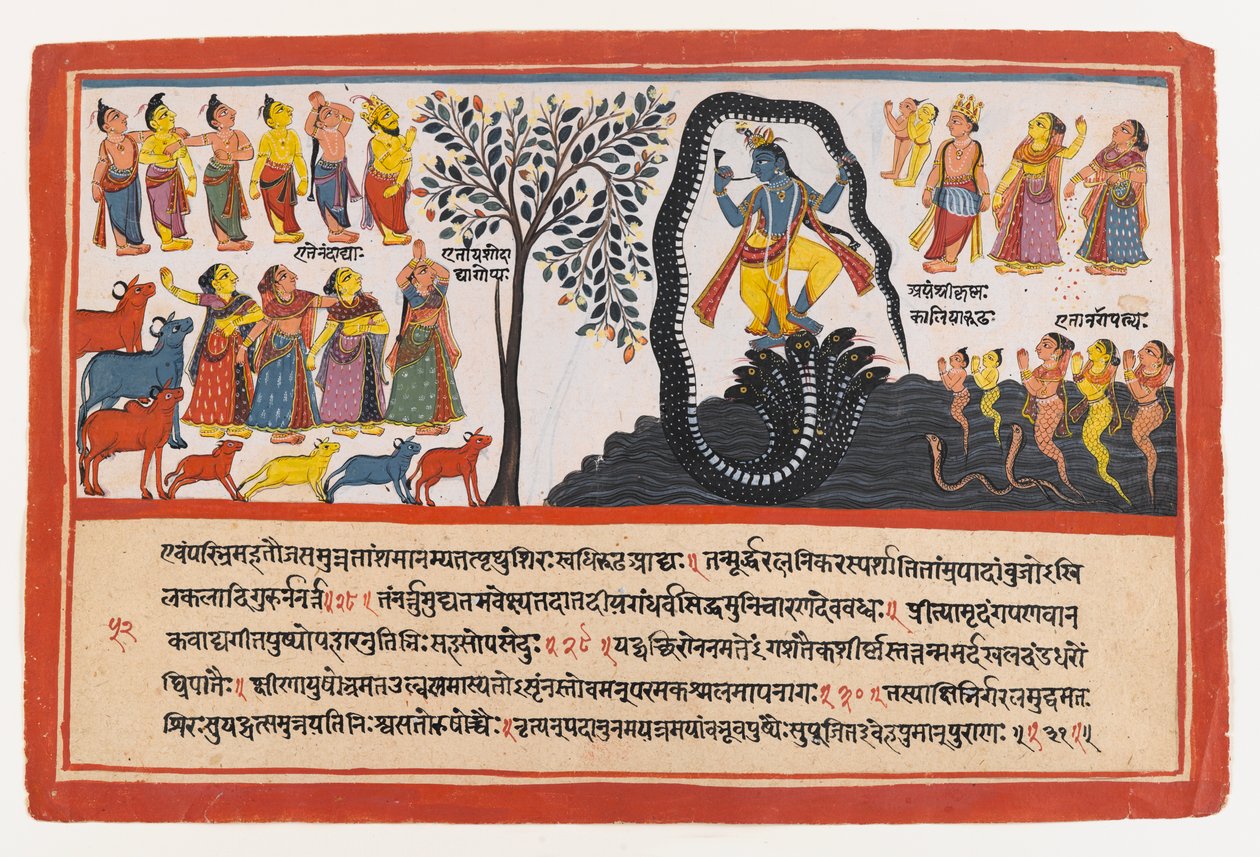 एतेनंदाद्याः
एतायशोदा
द्यागोप्यः
अयंश्रीकृष्णः
कालियारूढः
एतानागपत्न्यः
एवंपरिभ्रमहतौजसमुन्नतांशमानम्यतत्पृथुशिरःस्वधिरूढआद्यः॥तन्मूर्द्धरत्ननिकरस्पर्शातिताम्रपादांबुजोऽखि
लकलादिगुरुर्ननर्त्त॥२८॥तंनर्त्तुमुद्यतमवेक्ष्यतदातदीयगंधर्वसिद्धमुनिचारणदेववध्वः॥प्रीत्यामृदंगपणवान
५२
कवाद्यगीतपुष्पोपहारनुतिभिःसहसोपसेदुः॥२९॥यद्यच्छिरोननमतेऽंगशतैकशीर्ष्णस्तत्तन्ममर्दखलदंडधरों
घ्रिपातैः॥क्षीणायुषोभ्रमतउल्बणमास्यतोऽसृंनस्तोवमन्परमकश्मलमापनागः॥३०॥तस्याक्षिभिर्गरलमुद्वमतः
शिरःसुयद्यत्समुन्नयतिनिःश्वसतोरुषोच्चैः॥नृत्यन्पदानुनमयन्दमयांबभूवपुष्पैःसुपूजितइवेहपुमान्पुराणः॥३१॥